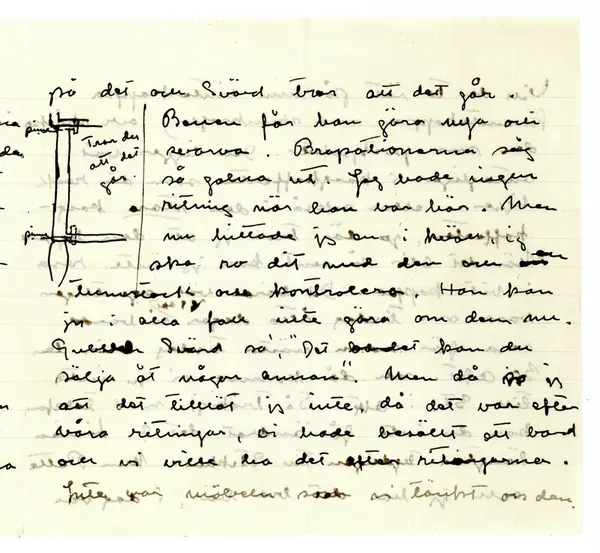 på det och Svärd tror att det går.
pinne
Tror du
att det
går.
pinne
Benen får han göra nya och
svarva. Propotionerna såg
så galna ut. Jag hade ingen
ritning när han var här. Men
nu hittade jg en i
ska ro dit med den och en
tumstock och kontrollera. Han kan
ju i alla fall inte göra om dem nu.
Gubben Svärd sa' "Det bordet kan du
sälja åt någon annan". Men då sa jg
att det tillät jg inte, då det var efter
våra ritningar, vi hade beställt ett bord
och vi ville ha det efter ritningarna.
Inte var möbeln som vi tänkt oss den.